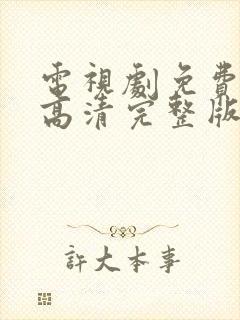 電視劇免費
高清完整版
許大本事